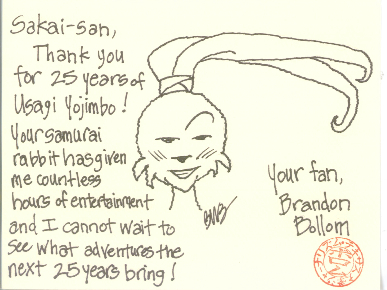 Sakai-san,
Thank you
for 25 years of
Usagi Yojimbo!
Your samurai
rabbit has given
me countless
hours of entertainment
and I cannot wait to
see what adventures the
next 25 years bring!
Your fan,
Brandon
Bollom